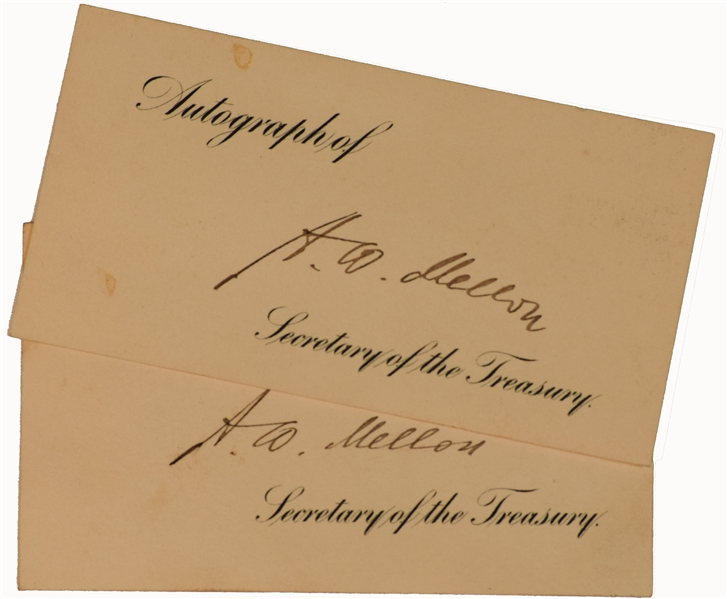 Autograph of
A. W. Mellon
Secretary of the Treasury.
A. W. Mellon
Secretary of the Treasury.